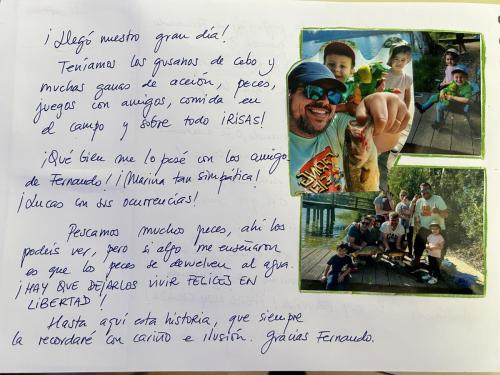 ¡Llegó nuestro gran día!
Teníamos los gusanos de cebo y
muchas ganas de acción, peces,
juegos con amigos, comida en
el campo y sobre todo ¡RISAS!
¡Qué bien me lo pasé con los amigos
de Fernando! ¡Marina tan simpática!
¡Lucas con sus ocurrencias!
Pescamos muchos peces, ahí los
podéis ver, pero si algo me enseñaron
es que los peces se devuelven al agua.
¡HAY QUE DEJARLOS VIVIR FELICES EN
LIBERTAD!
Hasta aquí esta historia, que siempre
la recordaré con cariño e ilusión. Gracias Fernando.